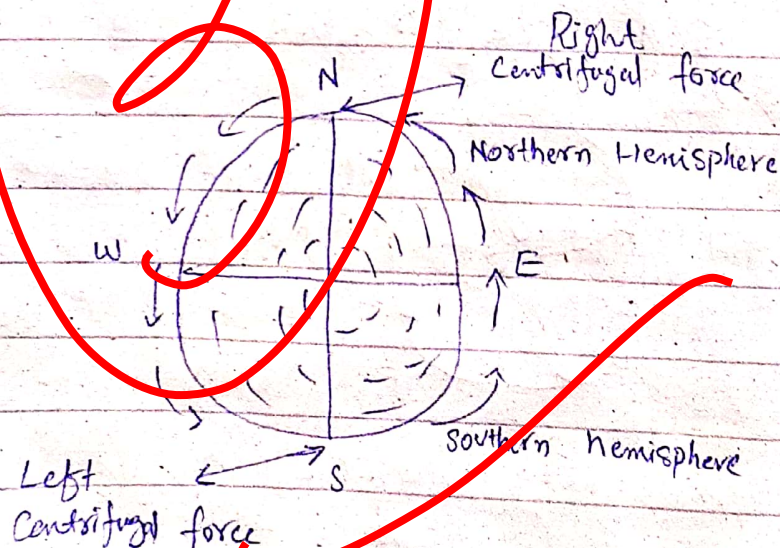 Right
Centrifugal force
N
Northern Hemisphere
W
E
Southern hemisphere
S
Left
Centrifugal force